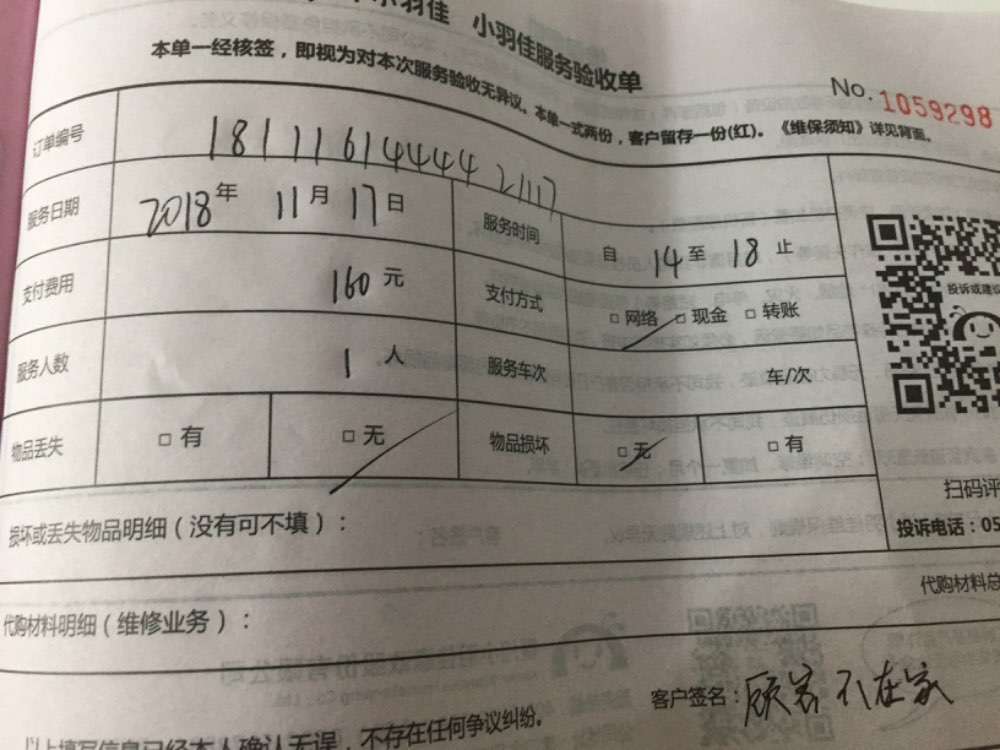 小羽佳 小羽佳服务验收单
本单一经核签，即视为对本次服务验收无异议。本单一式两份，客户留存一份(红)。《维保须知》详见背面。
No. 1059298
订单编号 181116144442117
服务日期 2018年 11月 17日 服务时间 自 14 至 18 止
支付费用 160 元 支付方式 □ 网络 □ 现金 □ 转账
服务人数 1 人 服务车次 车/次
物品丢失 □ 有 □ 无 物品损坏 □ 无 □ 有
投诉或建议
扫码评
投诉电话：05
损坏或丢失物品明细（没有可不填）：
代购材料明细（维修业务）：
代购材料总
客户签名：顾客不在家
以上填写信息已经本人确认无误，不存在任何争议纠纷。